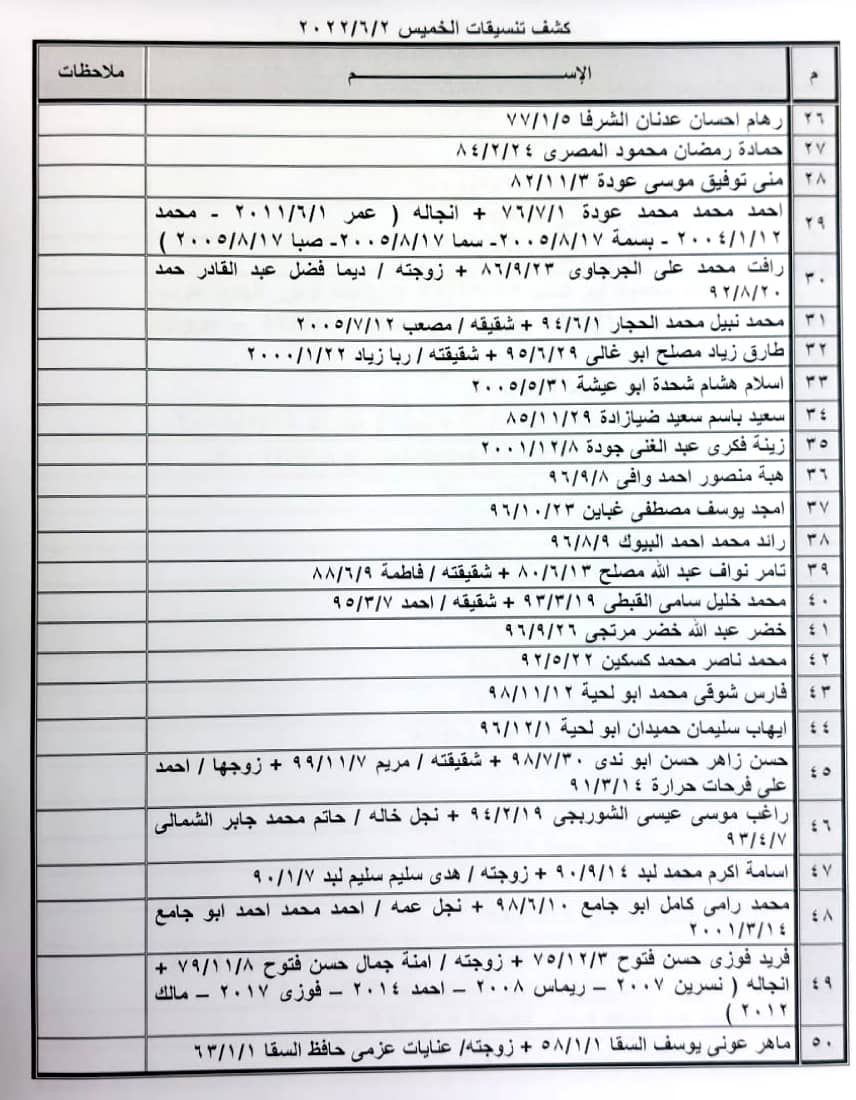 كشف تنسيقات الخميس ٢٠٢٢/٦/٢
م الإســـــــــــم ملاحظات
٢٦ رهام احسان عدنان الشرفا ٧٧/١/٥
٢٧ حمادة رمضان محمود المصرى ٨٤/٢/٢٤
٢٨ منى توفيق موسى عودة ٨٢/١١/٣
٢٩ احمد محمد محمد عودة ٧٦/٧/١ + انجاله ( عمر ٢٠١١/٦/١ - محمد
٢٠٠٤/١/١٢ - بسمة ٢٠٠٥/٨/١٧- سما ٢٠٠٥/٨/١٧- صبا ٢٠٠٥/٨/١٧ )
٣٠ رافت محمد على الجرجاوى ٨٦/٩/٢٣ + زوجته / ديما فضل عبد القادر حمد
٩٢/٨/٢٠
٣١ محمد نبيل محمد الحجار ٩٤/٦/١ + شقيقه / مصعب ٢٠٠٥/٧/١٢
٣٢ طارق زياد مصلح ابو غالى ٩٥/٦/٢٩ + شقيقته / ربا زياد ٢٠٠٠/١/٢٢
٣٣ اسلام هشام شحدة ابو عيشة ٢٠٠٥/٥/٣١
٣٤ سعيد باسم سعيد ضيازادة ٨٥/١١/٢٩
٣٥ زينة فكرى عبد الغنى جودة ٢٠٠١/١٢/٨
٣٦ هبة منصور احمد وافى ٩٦/٩/٨
٣٧ امجد يوسف مصطفى غباين ٩٦/١٠/٢٣
٣٨ رائد محمد احمد البيوك ٩٦/٨/٩
٣٩ تامر نواف عبد الله مصلح ٨٠/٦/١٣ + شقيقته / فاطمة ٨٨/٦/٩
٤٠ محمد خليل سامى القبطى ٩٣/٣/١٩ + شقيقه / احمد ٩٥/٣/٧
٤١ خضر عبد الله خضر مرتجى ٩٦/٩/٢٦
٤٢ محمد ناصر محمد كسكين ٩٢/٥/٢٢
٤٣ فارس شوقى محمد ابو لحية ٩٨/١١/١٢
٤٤ ايهاب سليمان حميدان ابو لحية ٩٦/١٢/١
٤٥ حسن زاهر حسن ابو ندى ٩٨/٧/٣٠ + شقيقته / مريم ٩٩/١١/٧ + زوجها / احمد
على فرحات حرارة ٩١/٣/١٤
٤٦ راغب موسى عيسى الشوربجى ٩٤/٢/١٩ + نجل خاله / حاتم محمد جابر الشمالى
٩٣/٤/٧
٤٧ اسامة اكرم محمد لبد ٩٠/٩/١٤ + زوجته / هدى سليم سليم لبد ٩٠/١/٧
٤٨ محمد رامى كامل ابو جامع ٩٨/٦/١٠ + نجل عمه / احمد محمد احمد ابو جامع
٢٠٠١/٣/١٤
٤٩ فريد فوزى حسن فتوح ٧٥/١٢/٣ + زوجته / امنة جمال حسن فتوح ٧٩/١١/٨ +
انجاله ( نسرين ٢٠٠٧ – ريماس ٢٠٠٨ – احمد ٢٠١٤ – فوزى ٢٠١٧ – مالك
٢٠١٢ )
٥٠ ماهر عونى يوسف السقا ٥٨/١/١ + زوجته/ عنايات عزمى حافظ السقا ٦٣/١/١